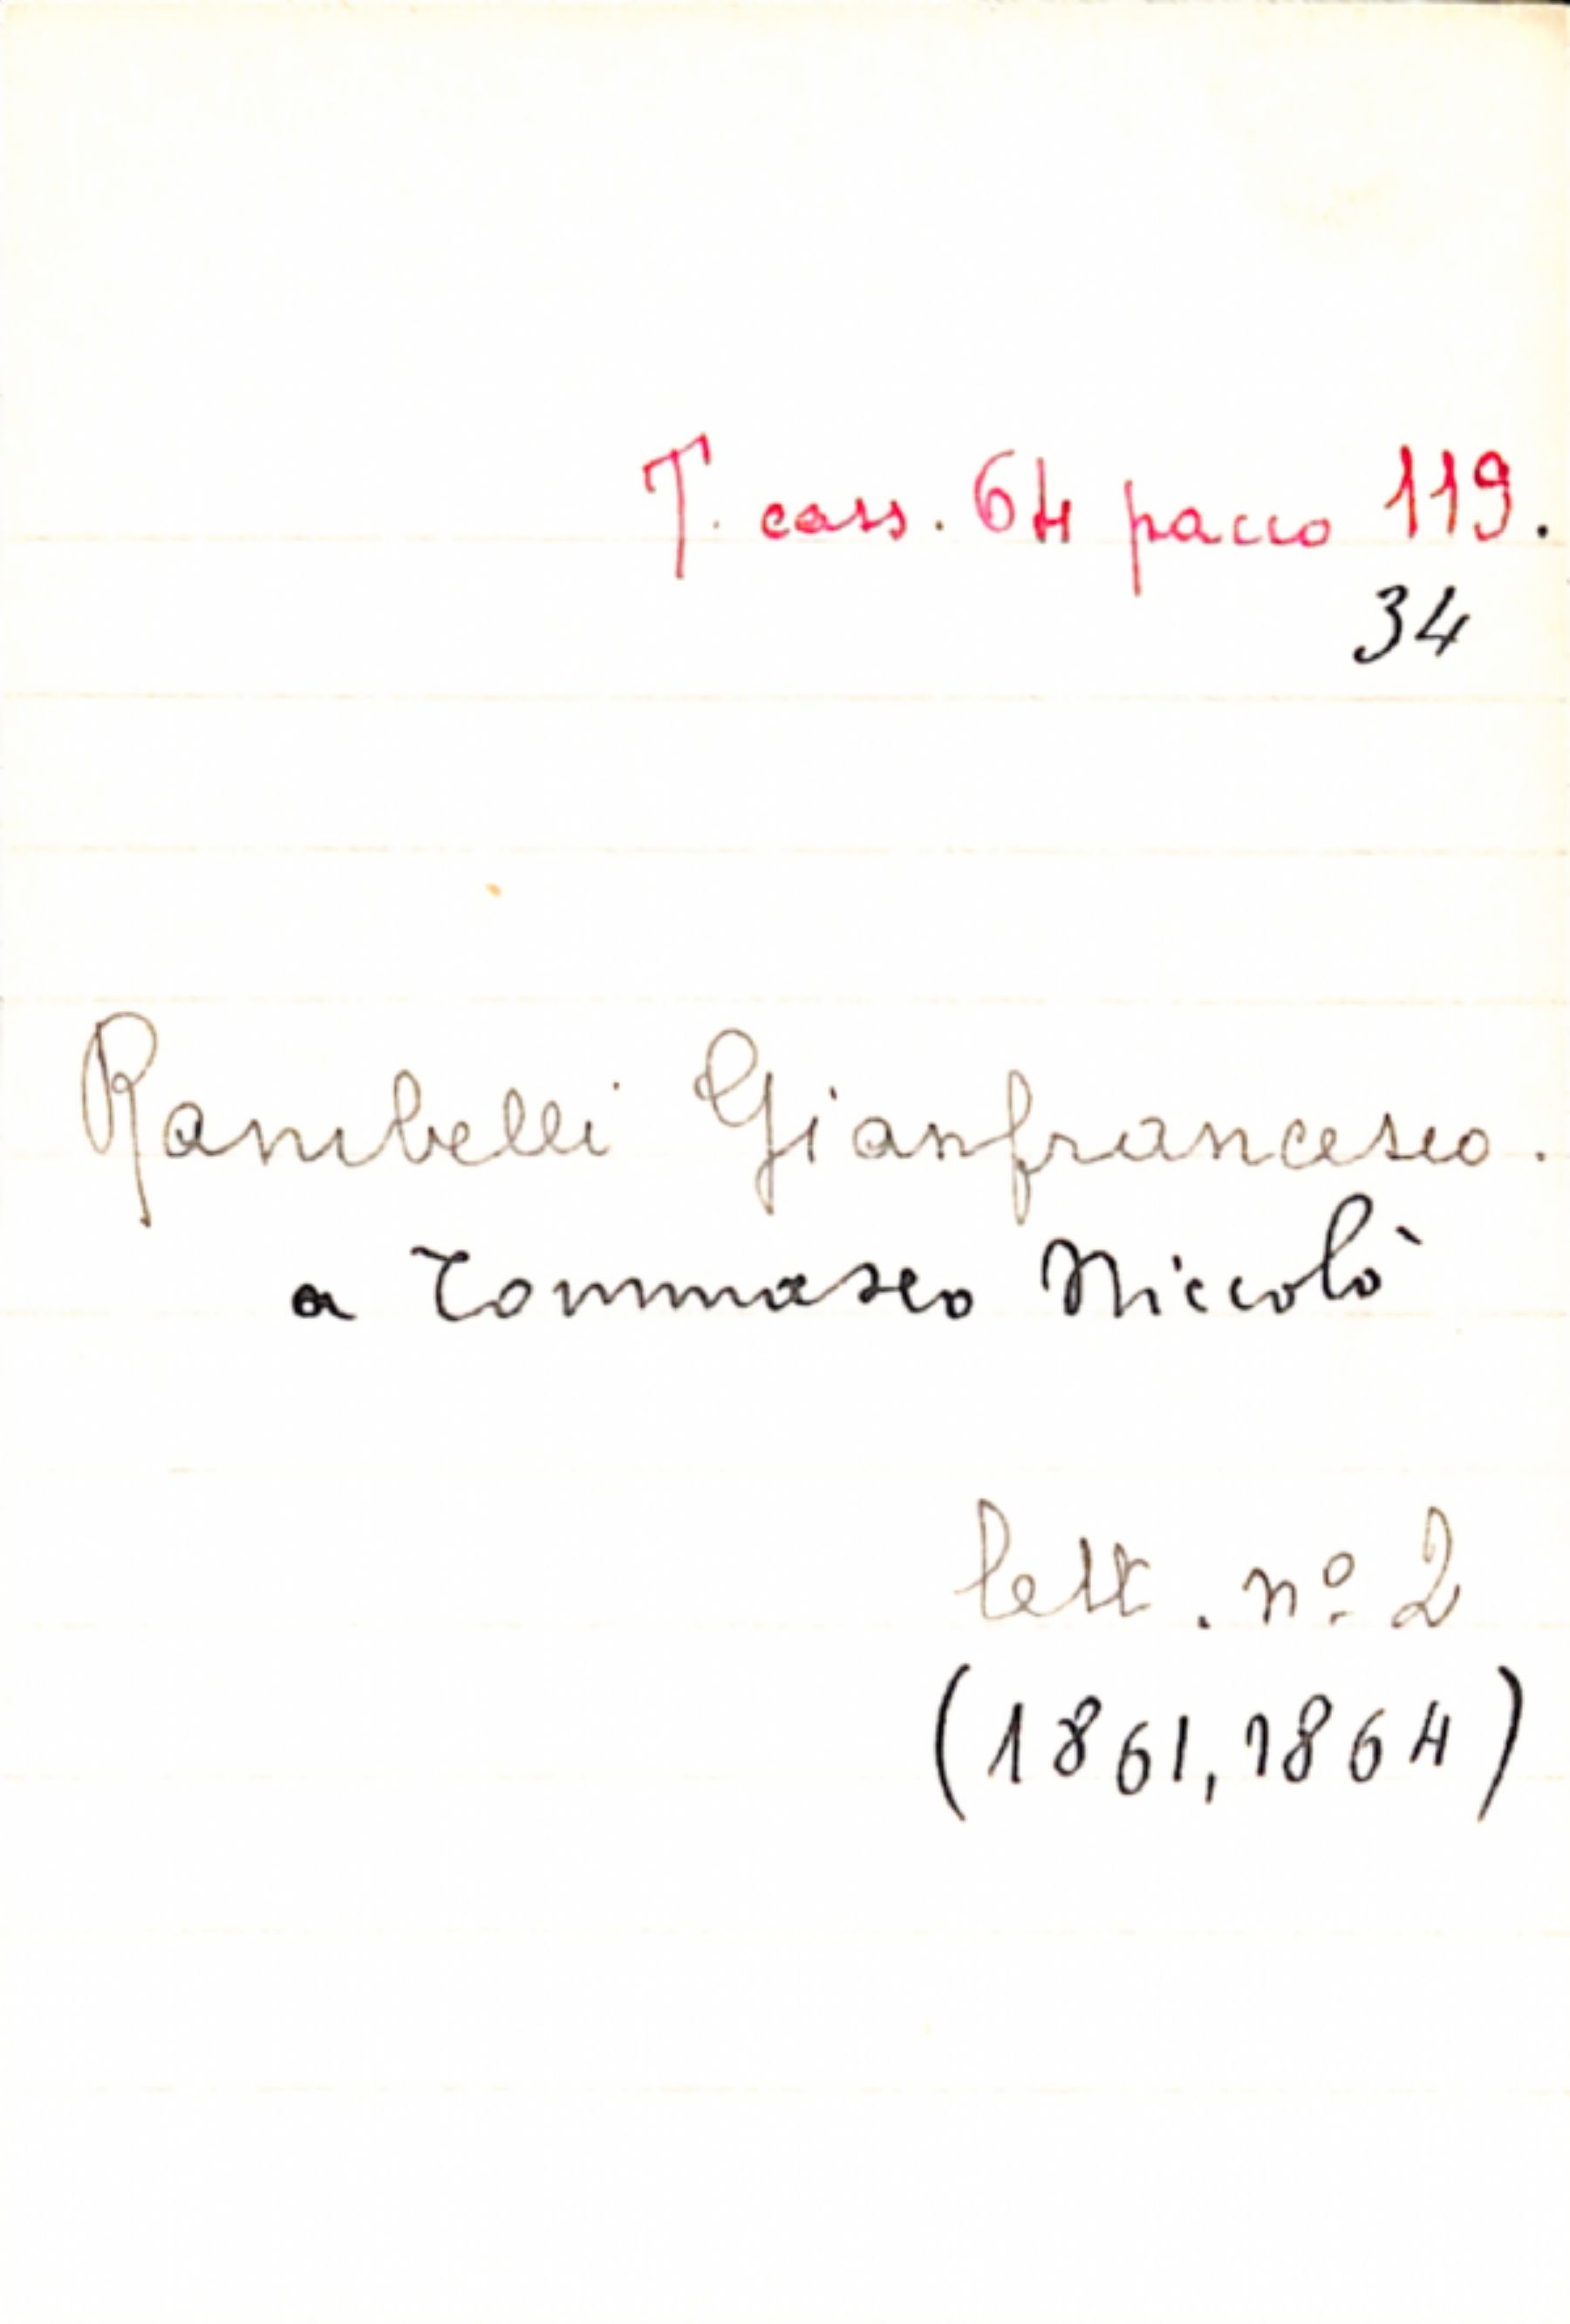 T. cass. 64 pacco 119.
34
Rambelli Gianfrancesco.
a Tommaseo Niccolò
lett. nº 2
(1861, 1864)